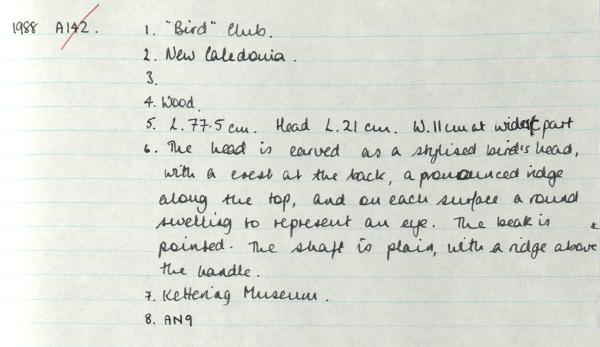 1988 A142. 1. "Bird" Club.
2. New Caledonia.
3.
4. Wood.
5. L. 77.5 cm. Head L. 21 cm. W. 11 cm at widest part
6. The head is carved as a stylised bird's head,
with a crest at the back, a pronounced ridge
along the top, and on each surface a round
swelling to represent an eye. The beak is
pointed. The shaft is plain, with a ridge above
the handle.
7. Kettering Museum.
8. AN9